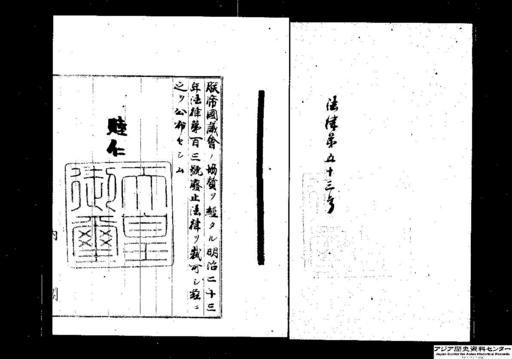 法律第五十三号
朕帝國議會ノ協賛ヲ經タル明治二十三
年法律第百三號廢止法律ヲ裁可シ茲ニ
之ヲ公布セシム
睦仁
天皇
御璽
アジア歴史資料センター
Japan Center for Asian Historical Records